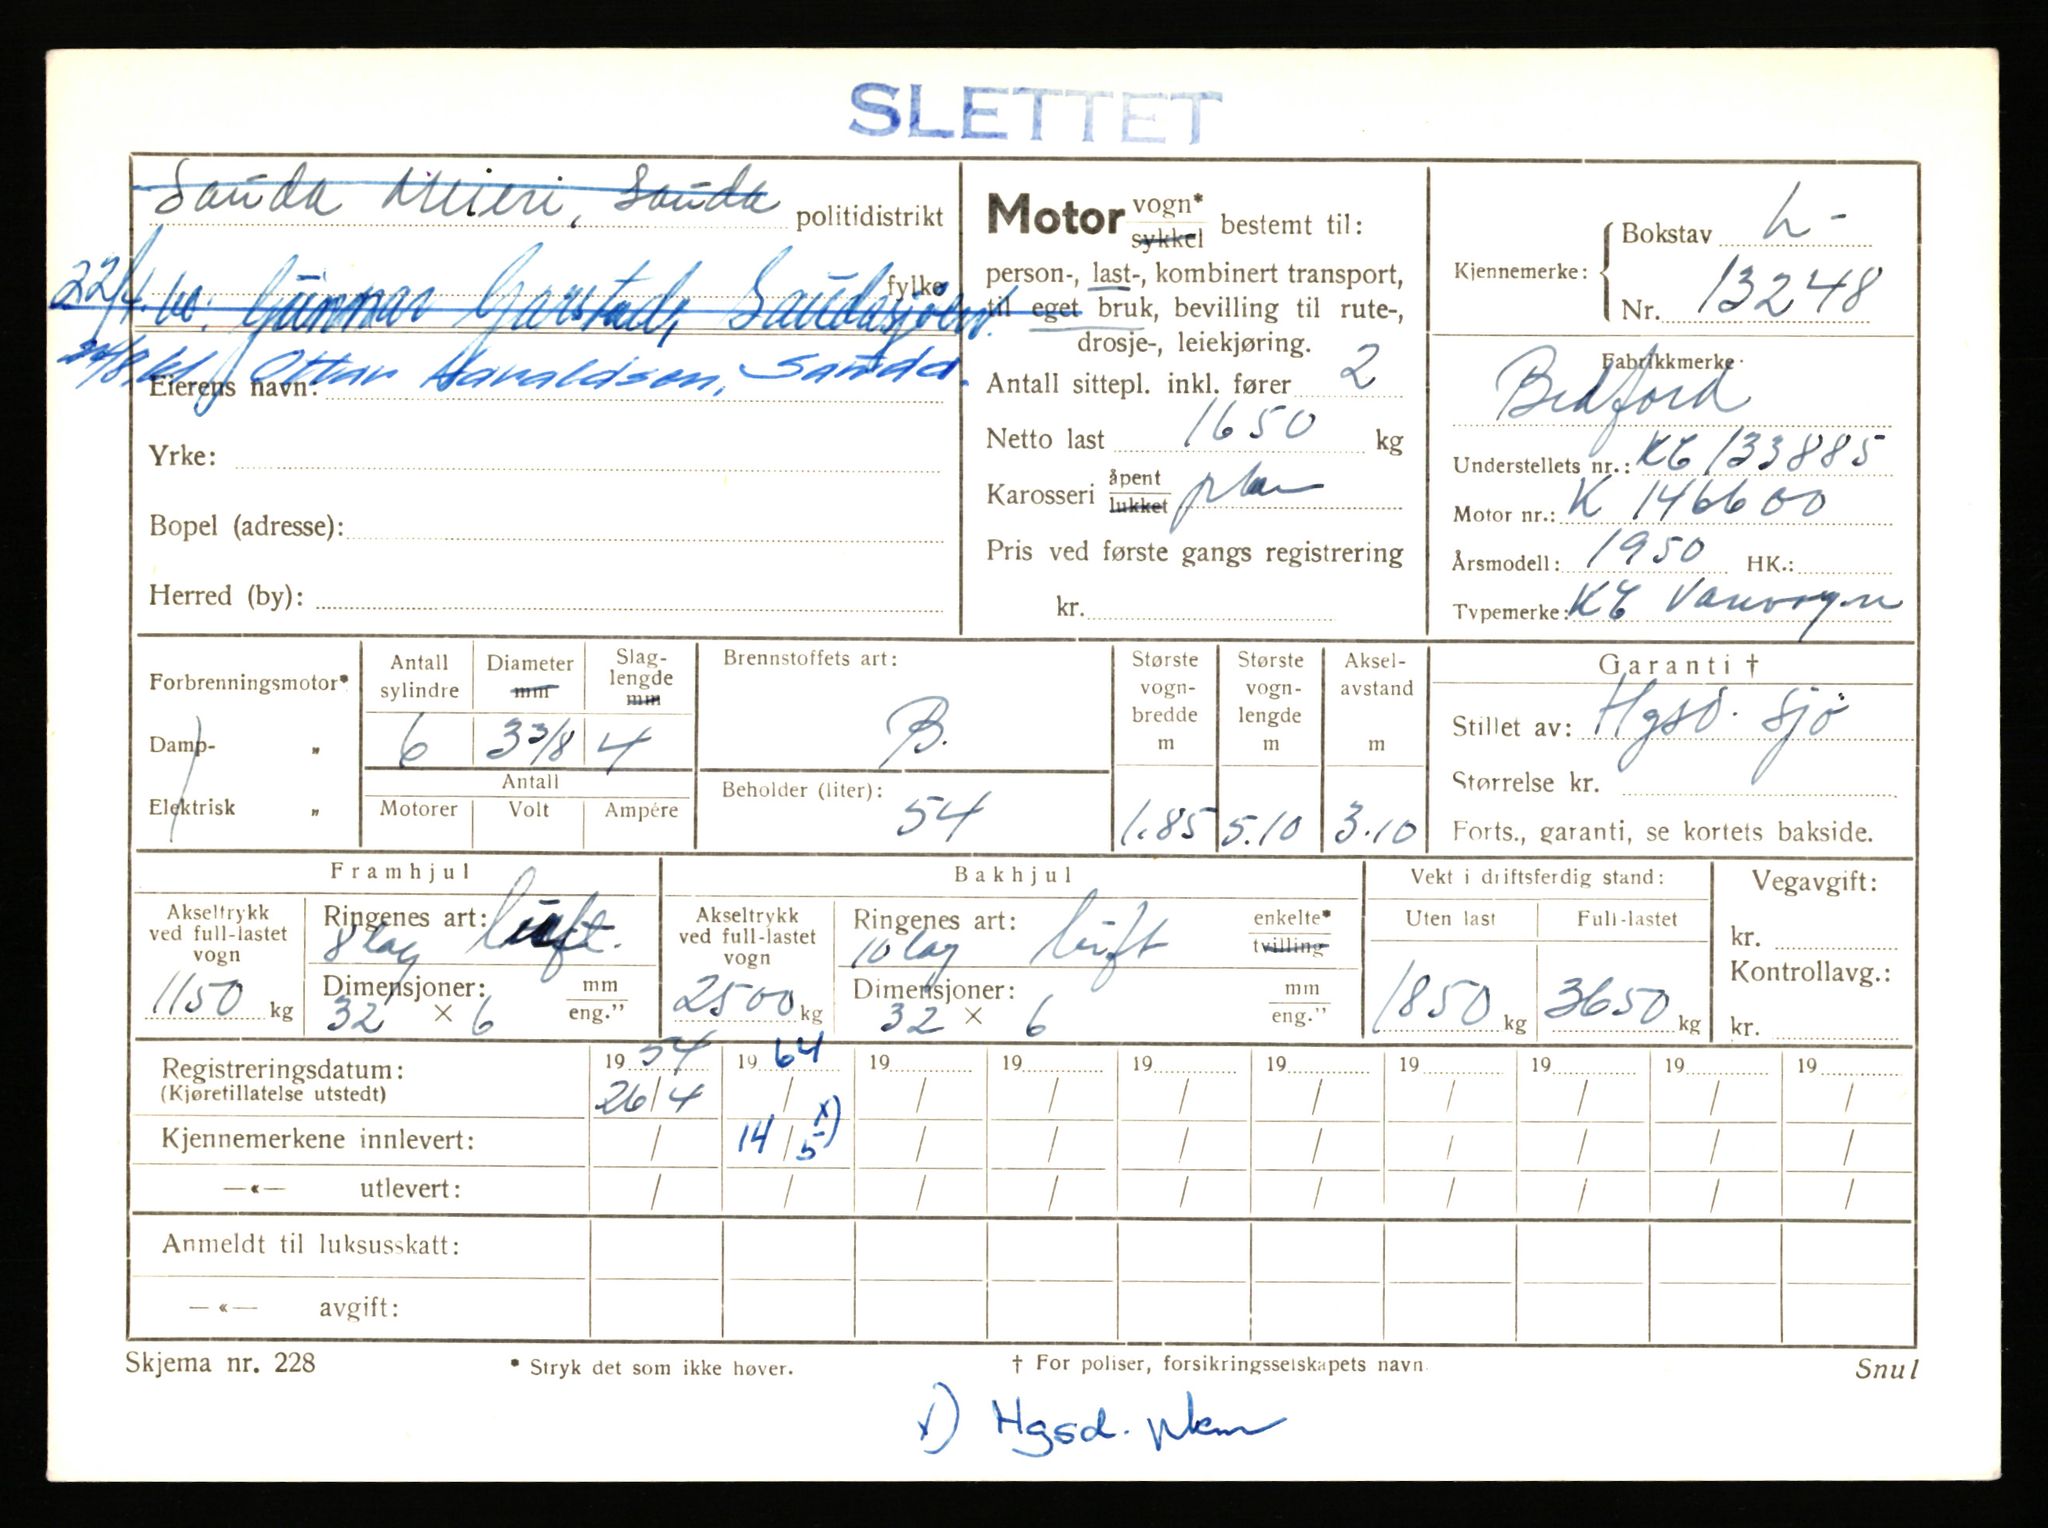 SLETTET
Sauda Meieri, Sauda politidistrikt
fylke
22/4.60. Gunnar Garstad, Saudasjøen.
Ottar Haraldsen, Sauda.
Eierens navn:
Yrke:
Bopel (adresse):
Herred (by):
Motor vogn* sykkel bestemt til:
person-, last-, kombinert transport,
til eget bruk, bevilling til rute-,
drosje-, leiekjøring.
Antall sittepl. inkl. fører 2
Netto last 1650 kg
Karosseri åpent lukket plan
Pris ved første gangs registrering
kr.
Kjennemerke: Bokstav L-
Nr. 13248
Fabrikkmerke
Bedford
Understellets nr.: KC 133885
Motor nr.: K 146600
Årsmodell: 1950 HK.:
Typemerke: KC Varevogn
Forbrenningsmotor*
Damp- „
Elektrisk „
Antall sylindre Diameter mm Slag-lengde mm
6 3 3/8 4
Antall
Motorer Volt Ampére
Brennstoffets art:
B.
Beholder (liter):
54
Største vogn-bredde m 1.85
Største vogn-lengde m 5.10
Aksel-avstand m 3.10
Garanti †
Stillet av: Hgsd. Sjø
Størrelse kr.
Forts., garanti, se kortets bakside.
Framhjul
Akseltrykk ved full-lastet vogn 1150 kg
Ringenes art: 8 lag luft.
Dimensjoner: mm eng.”
32 × 6
Bakhjul
Akseltrykk ved full-lastet vogn 2500 kg
Ringenes art: 10 lag luft enkelte* tvilling
Dimensjoner: mm eng.”
32 × 6
Vekt i driftsferdig stand:
Uten last Full-lastet
1850 kg 3650 kg
Vegavgift:
kr.
Kontrollavg.:
kr.
Registreringsdatum: 19 54 19 64 19 19 19 19 19 19 19 19
(Kjøretillatelse utstedt) 26/4 / / / / / / / / /
Kjennemerkene innlevert: / 14/5 x) / / / / / / / /
—«— utlevert: / / / / / / / / / /
Anmeldt til luksusskatt:
—«— avgift:
Skjema nr. 228 * Stryk det som ikke høver. † For poliser, forsikringsselskapets navn Snul
x) Hgsd. pkm